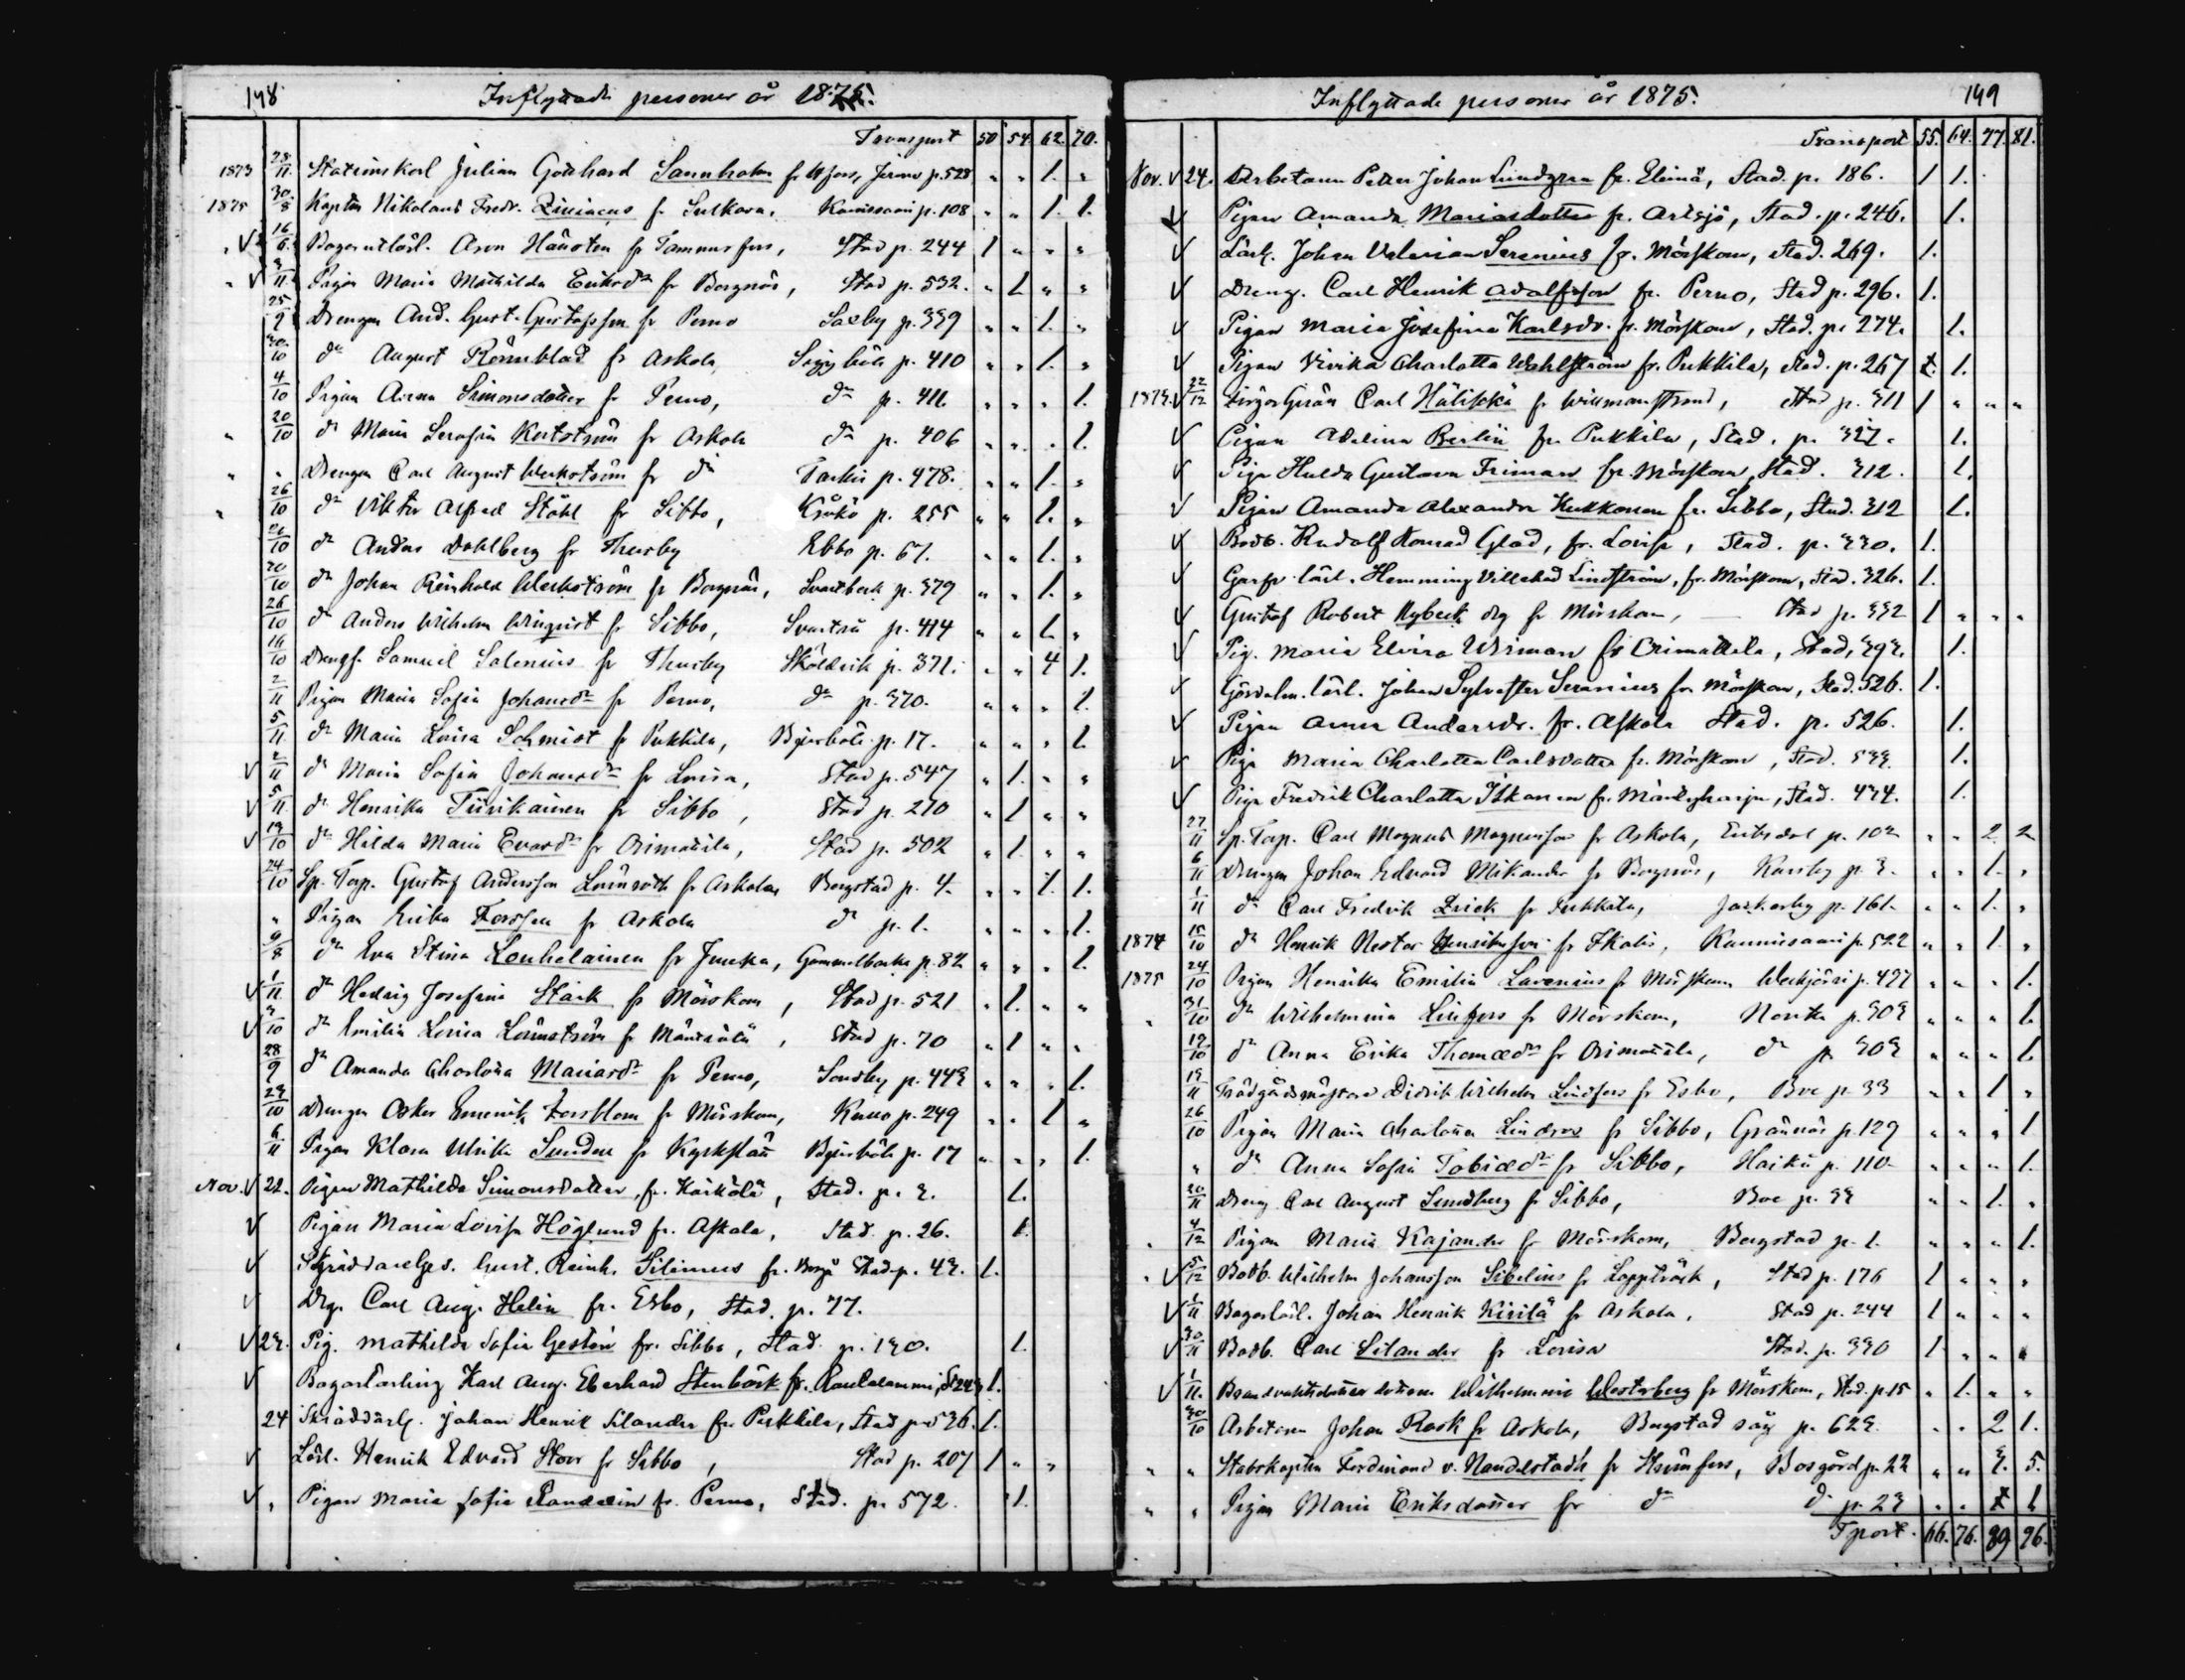 148 Inflyttade personer år 1875.
Transport 50 54 62. 70.
1873 28/11 Stationskarl Julian Gotthard Sannholm fr Hfors, p. 528 " " 1. "
1875 30/8 Kapten Nikolaus Fredr. fr. Sulkava, p. 108 " " 1. 1.
" √ 16/6 Bagerietlärl. Aron fr Tammerfors, Stad p. 244 1 " " "
" √ 11 Pigan Maria Mathilda Eriksdr fr Borgnäs, Stad p. 532. " 1 " "
25/9 Drengen And. Gust. Gustafsson fr Perno Saxby p. 339 " " 1. "
30/10 dn August Rönnblad fr Askola, p. 410 " " 1. "
4/10 Pigan Anna Simonsdotter fr Perno, dn p. 411. " " " 1.
" 20/10 dn Maria Serafia fr Askola dn p. 406 " " " 1.
" " Drengen Carl August Werkström fr dn Tarkis p. 478. " " 1. "
" 26/10 dn Viktor Alfred Ståhl fr Sibbo, Kråkö p. 255 " " 1. "
26/10 dn Anders Dahlberg fr Thusby Ebbo p. 67. " " 1. "
20/10 dn Johan Reinhold Werkström fr Borgnäs, Svartbeck p. 379 " " 1. "
26/10 dn Anders Wilhelm Winqvist fr Sibbo, Svartså p. 414 " " 1. "
10 Drengf. Samuel Salenius fr Thusby Sköldvik p. 371. " " 4 1.
2/11 Pigan Maria Sofia Johansdr fr Perno, dn p. 370. " " " 1.
5/11 dn Maria Lovisa Schmidt fr Pukkila, Bjurböle p. 17. " " " 1.
√ 2/11 dn Maria Sofia Johansdr fr Lovisa, Stad p. 547 " 1. " "
√ 5/11 dn Henrika Tiirikainen fr Sibbo, Stad p. 210 " 1 " "
√ 19/10 dn Hilda Maria fr Orimattila, Stad p. 502 " 1. " "
24/10 Sp. Torp. Gustaf Andersson Lönnroth fr Askola Borgstad p. 4. " " 1. 1.
" Pigan Erika Forssen fr Askola dn p. 1. " " " 1.
9/8 dn Eva Stina Louhelainen fr Juuka, Gammelbacka p. 82 " " " 1.
√ 1/11 dn Hedvig Josefina Stark fr Mörskom, Stad p. 521 " 1. " "
√ /10 dn Emilia Lovisa Lönnström fr Mäntsälä, Stad p. 70 " 1 " "
28/9 dn Amanda Charlotta Mariasdr fr Perno, Sondby p. 443 " " " 1.
23/10 Drengen Oskar Emerik Forsblom fr Mörskom, p. 249 " " 1 "
6/11 Pigan Klara Ulrika Sunden fr Kyrkslätt Bjurböle p. 17 " " " 1.
Nov. √ 22. Pigan Mathilda Simonsdotter, fr. Kärkölä, Stad. p. 3. 1.
√ Pigan Maria Lovisa Höglund fr. Askola, Stad. p. 26. 1.
√ Skräddareges. Gust. Reinh. Silenius fr. Borgå Stad p. 43. 1.
√ Drg. Carl Aug. Helin fr. Esbo, Stad. p. 77.
√ 23. Pig. Mathilda Sofia fr. Sibbo, Stad p. 130. 1.
√ Bagarlärling Karl Aug. Eberhard Stenbäck fr. Rautalammi, 1.
24 Skräddärl. Johan Henrik Silander fr. Pukkila, Stad p. 536. 1.
√ Lärl. Henrik Edvard Storr fr Sibbo, Stad p. 207 1 " "
√ " Pigan Maria Sofia Randelin fr. Perno, Stad. p. 572. 1.
Inflyttade personer år 1875. 149
Transport 55. 64. 77. 81.
Nov. √ 24. Arbetaren Petter Johan Lindgren fr. Elimä, Stad. p. 186. 1 1.
√ Pigan Amanda Mariasdotter fr. Artsjö, Stad. p. 246. 1.
√ Lärl. Johan Valerian Serenius fr. Mörskom, Stad. 269. 1.
√ Dreng. Carl Henrik Adolfsson fr. Perno, Stad p. 296. 1.
√ Pigan Maria Josefina Karlsdr. fr. Mörskom, Stad. p. 274. 1.
√ Pigan Vivika Charlotta Wahlström fr. Pukkila, Stad. p. 267 1. 1.
√ 22/12 Carl Hälikkä fr Willmanstrand, Stad p. 311 1 " " "
√ Pigan Adelina Berlin fr. Pukkila, Stad. p. 327. 1.
√ Piga Hulda Gustava Friman fr. Mörskom, Stad. 312. 1.
√ Pigan Amanda Alexandra Kukkonen fr. Sibbo, Stad. 312 1.
√ Bodb. Rudolf Konrad Glad, fr. Lovisa, Stad. p. 330. 1.
√ Garfv. lärl. Hemming Villehad Lindström, fr. Mörskom, Stad. 326. 1.
√ Gustaf Robert Nybeck drg fr Mörskom, Stad p. 332 1 " " "
√ Pig. Maria Elvira Wirman fr Orimattila, Stad, 393. 1.
√ lärl. Johan Sylvester Serenius fr. Mörskom, Stad. 526. 1.
√ Pigan Anna Andersdr. fr. Askola Stad. p. 526. 1.
√ Piga Maria Charlotta Carlsdotter fr. Mörskom, Stad. 533. 1.
√ Piga Fredrik Charlotta Itkonen fr. Mäntyharju, Stad. 434. 1.
27/11 Sp. Torp. Carl Magnus Magnusson fr Askola, p. 102 " " 2. 2
6/11 Drengen Johan Edvard Mikander fr Borgnäs, Karsby p. 3. " " 1. "
1/11 dn Carl Fredrik fr Pukkila, Jackarby p. 161. " " 1. "
1874 15/10 dn Henrik Nestor Henriksson fr Ikalis, p. 522 " " 1. "
1875 24/10 Pigan Henrika Emilia Lavenius fr Mörskom Werkjärvi p. 427 " " " 1.
" 31/10 dn Wilhelmina Lindfors fr Mörskom, p. 303 " " " 1.
12/10 dn Anna Erika Thomædr fr Orimattila, dn p. 303 " " " 1.
19/11 Trädgårdsmästare Didrik Wilhelm Lindfors fr Esbo, Boe p. 33 " " 1 "
26/10 Pigan Maria Charlotta Lindroos fr Sibbo, Grännäs p. 129 " " " 1
" dn Anna Sofia Tobiædr fr Sibbo, Haiko p. 110. " " " 1.
20/11 Dreng Carl August Sundberg fr Sibbo, Boe p. 33 " " 1. "
" 4/12 Pigan Maria Kajander fr Mörskom, Borgstad p. 1. " " " 1.
" √ 5/12 Bodb. Wilhelm Johansson Sibelius fr Lappträsk, Stad p. 176 1 " " "
√ 1/11 Bagarlärl. Johan Henrik Kirilä fr Askola, Stad p. 244 1 " " "
√ 30/11 Bodb. Carl Silander fr Lovisa Stad. p. 330 1 " " "
√ 1/11. Brandvaktsdotter Wilhelmina Westerberg fr Mörskom, Stad. p. 15 " 1. " "
30/10 Arbetaren Johan Rask fr Askola, Borgstad såg p. 623. " " 2 1.
" " Stabskapten Ferdinand v. Nandelstadh fr Strömfors, Bosgård p. 22 " " 3. 5.
" " Pigan Maria Eriksdotter fr dn d. p. 23 " " 1
Tport. 66. 76. 89 96.